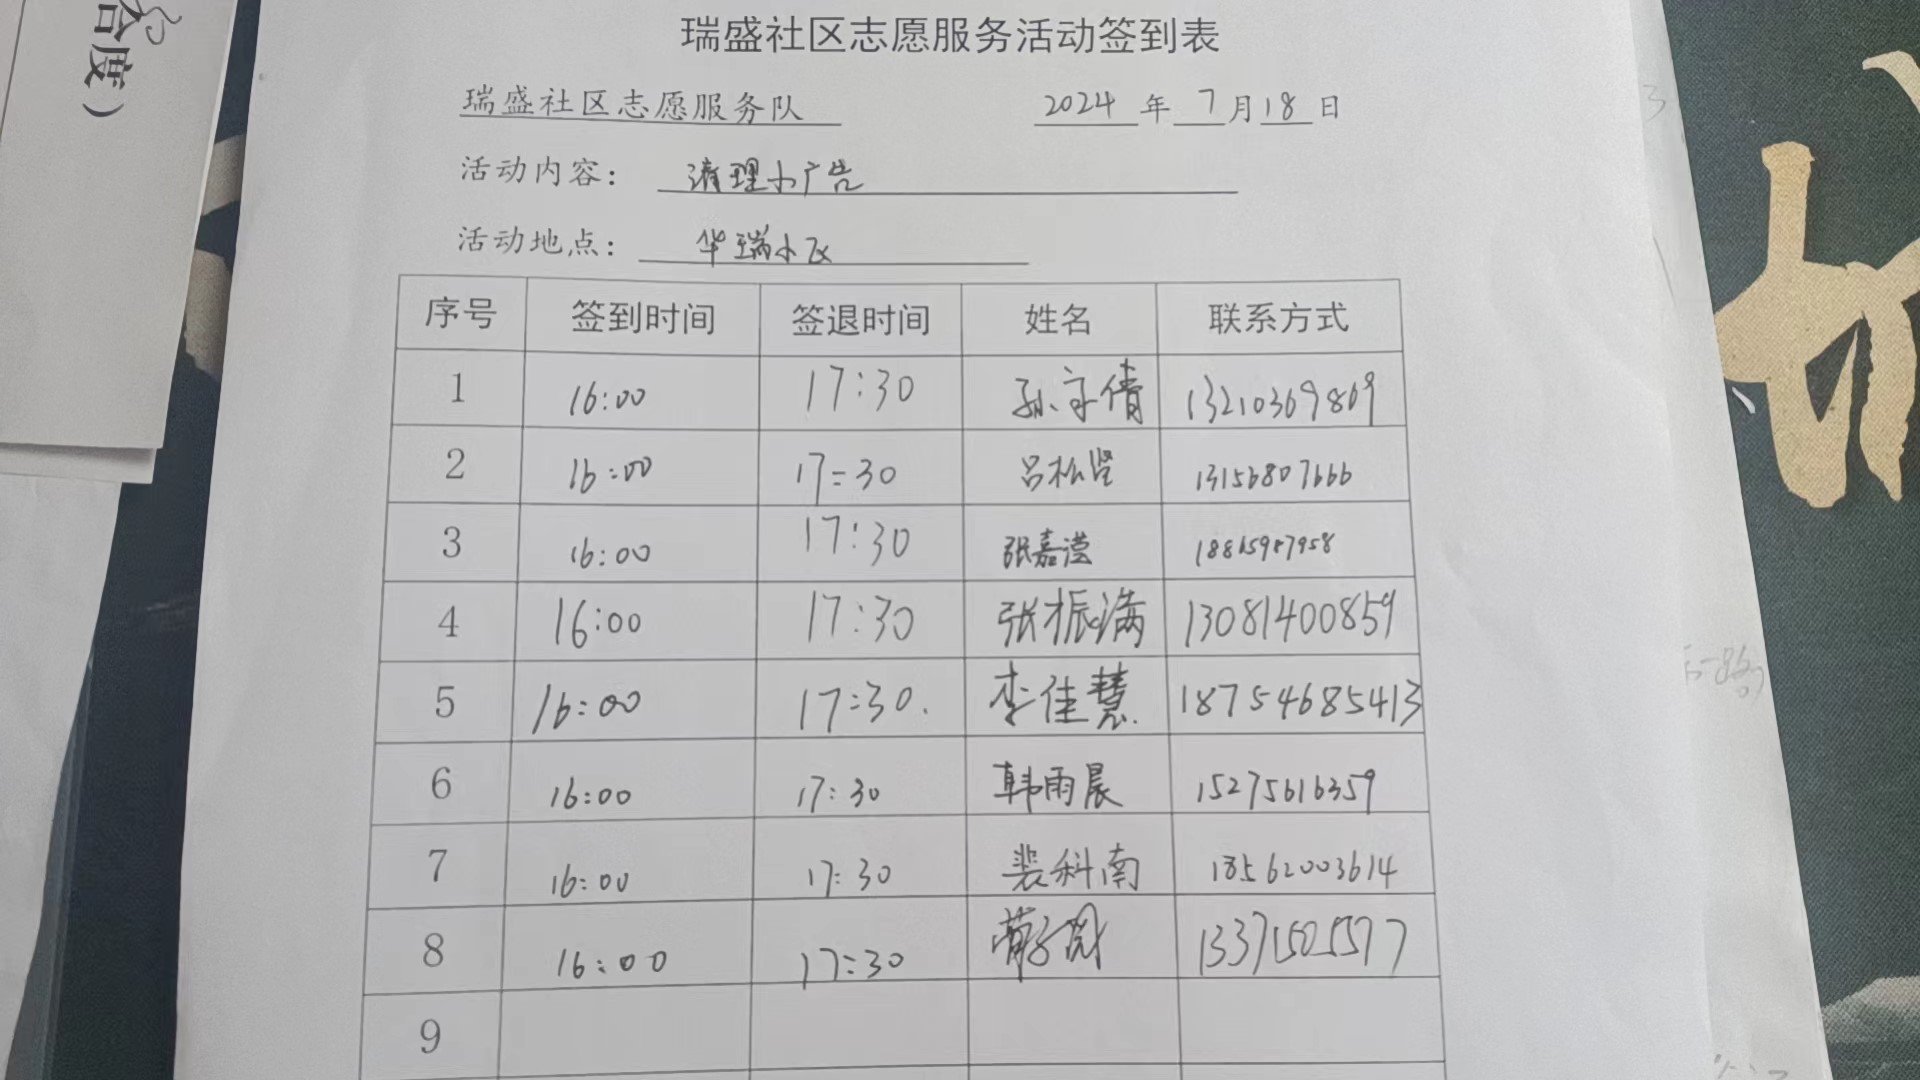 合
度）
瑞盛社区志愿服务活动签到表
瑞盛社区志愿服务队 2024 年 7 月 18 日
活动内容： 清理小广告
活动地点： 华瑞小区
序号 签到时间 签退时间 姓名 联系方式
1 16:00 17:30 孙守倩 13210369869
2 16:00 17:30 吕松坚 13156807666
3 16:00 17:30 张嘉滢 18865987958
4 16:00 17:30 张振满 13081400859
5 16:00 17:30. 李佳慧 18754685413
6 16:00 17:30 韩雨晨 15275616359
7 16:00 17:30 裴科南 18562003614
8 16:00 17:30 13371505597
9